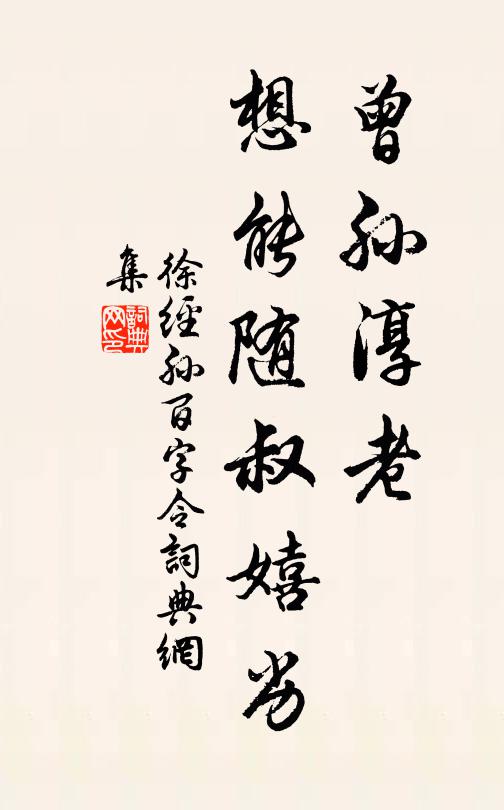 曾孙淳老
想能随叔嬉劣
徐經孙百字令詞典網
集
詞典
网印